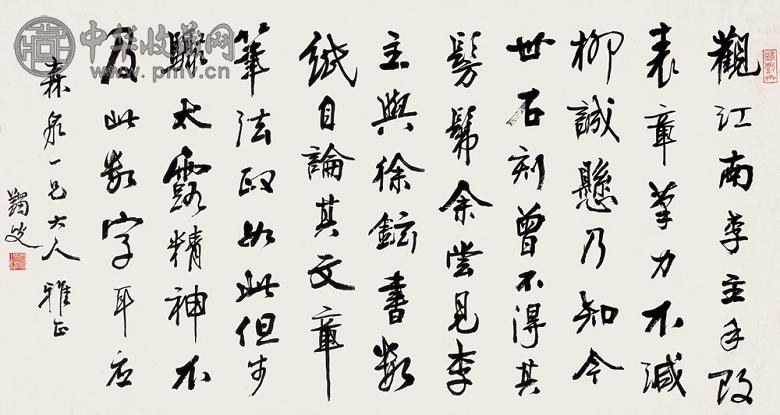 觀江南李主手改
表章筆力不減
柳誠懸乃知今
世石刻曾不得其
髣髴余嘗見李
主與徐鉉書數
紙自論其文章
筆法政如此但步
驟太露精神不
及此數字耳应
森泉一兄大人雅正
蠲叟
中华收藏网
www.pmv.cn